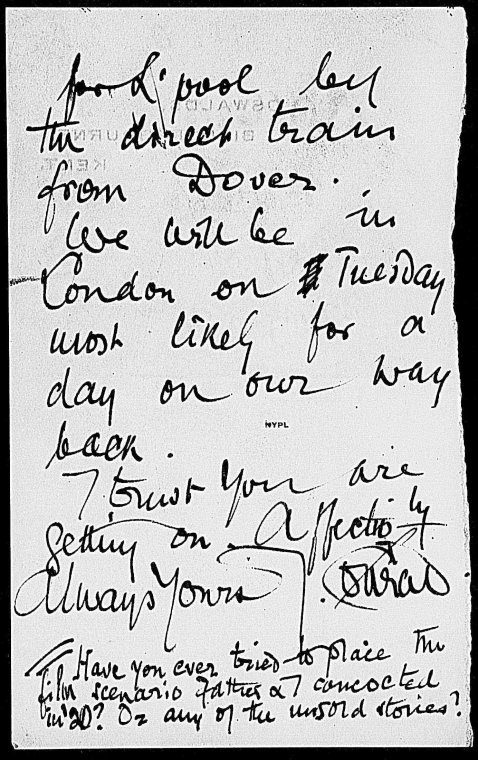 for L'pool by
the direct train
from Dover.
We will be in
London on Tuesday
most likely for a
day on our way
back.
I trust you are
getting on. Affectionately
Always Yours
NYPL
Have you ever tried to place the
film scenario Father & I concocted
in '20? Or any of the unsold stories?
OSWALD
BOURNE
KENT.